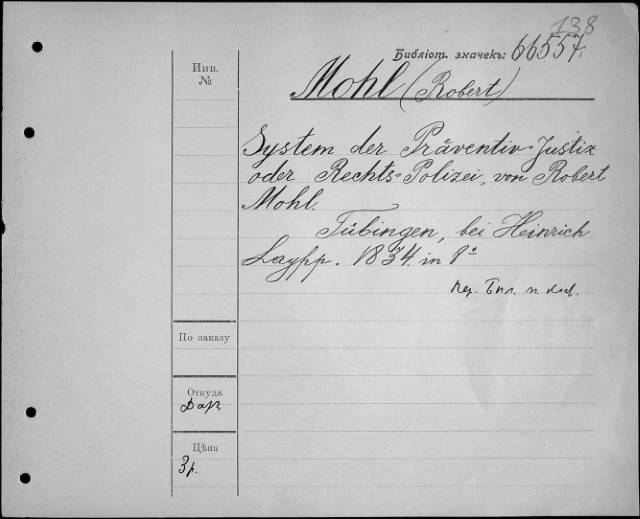 138
Библіот. значекъ: 66557.
Инв.
№
Mohl (Robert)
System der Präventiv-Justiz
oder Rechts-Polizei, von Robert
Mohl.
Tübingen, bei Heinrich
Laupp. 1834. in 8°
По заказу
Откуда
Даръ
Цѣна
3 р.